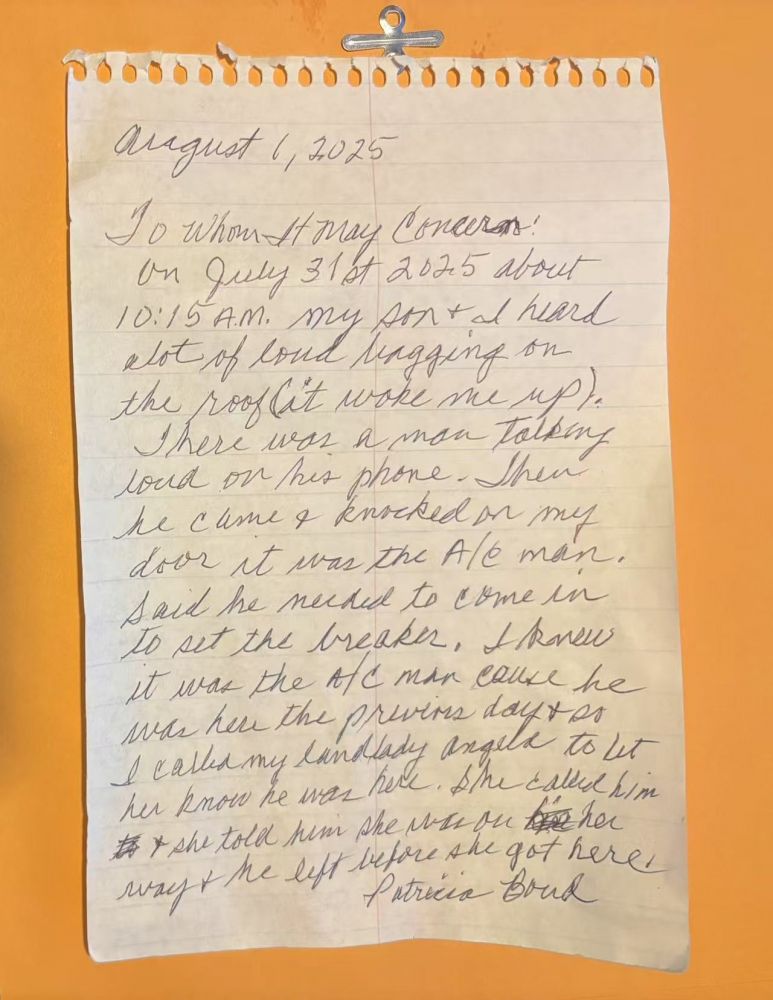 August 1, 2025
To Whom It May Concern:
On July 31st 2025 about
10:15 A.M. my son & I heard
alot of loud bagging on
the roof (it woke me up).
There was a man talking
loud on his phone. Then
he came & knocked on my
door it was the A/C man.
Said he needed to come in
to set the breaker. I knew
it was the A/C man cause he
was here the previous day & so
I called my landlady Angela to let
her know he was here. She called him
& she told him she was on her
way & he left before she got here.
Patricia Bond